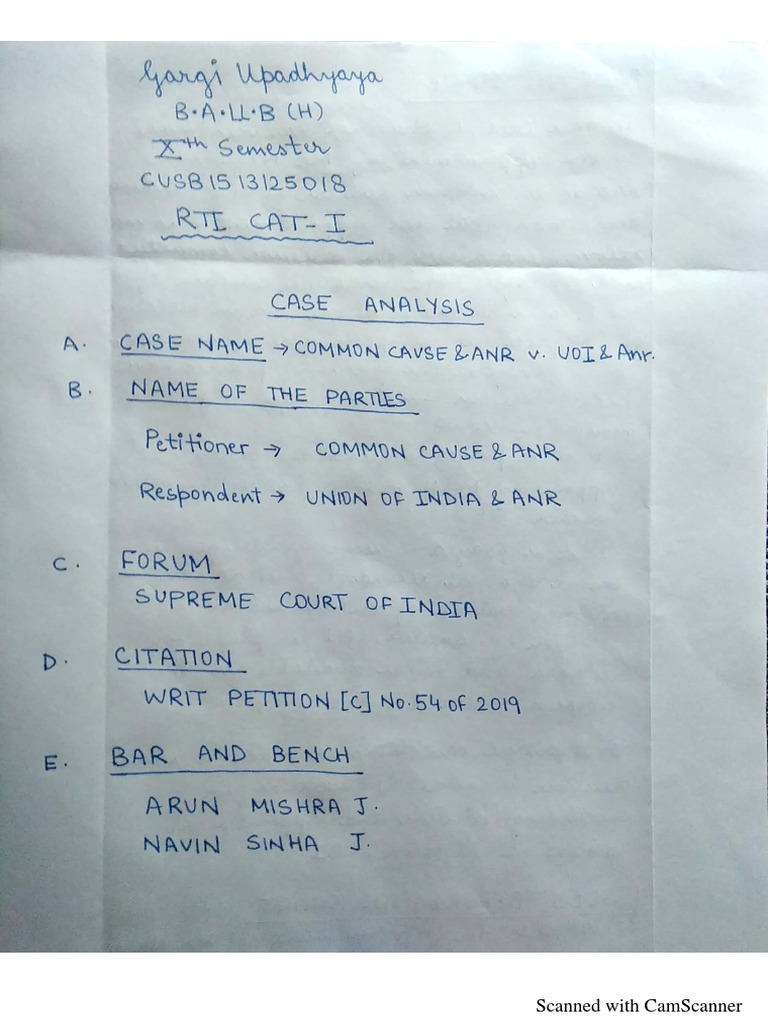 Gargi Upadhyaya
B.A.LL.B (H)
Xth Semester
CUSB1513125018
RTI CAT-I
CASE ANALYSIS
A. CASE NAME → COMMON CAUSE & ANR v. UOI & Anr.
B. NAME OF THE PARTIES
Petitioner → COMMON CAUSE & ANR
Respondent → UNION OF INDIA & ANR
C. FORUM
SUPREME COURT OF INDIA
D. CITATION
WRIT PETITION [C] No.54 of 2019
E. BAR AND BENCH
ARUN MISHRA J.
NAVIN SINHA J.
Scanned with CamScanner